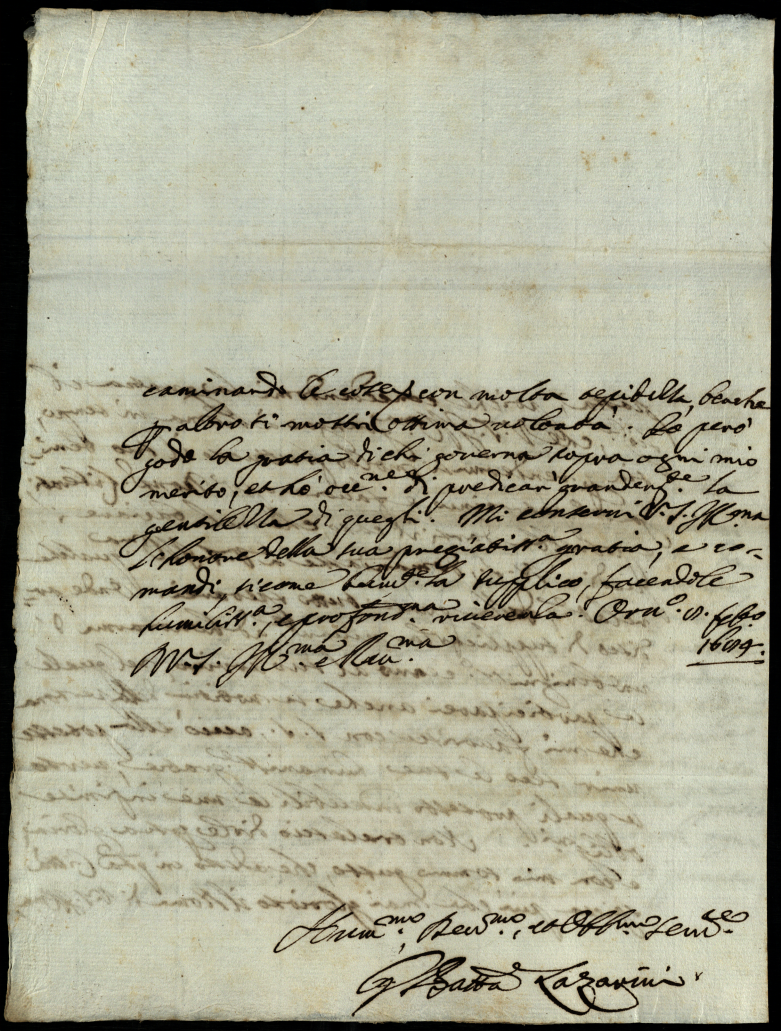 caminando le cose con molta tepidella, benche
p altro si mostri ottima volontà. Lo però
gode la gratia di chi governa sopra ogni mio
merito, et hò occ.ne di predicar grandem.te la
gentilella di quegli. Mi conservi V. S. Ill.ma
l'honore della sua pregiabiliss.a gratia, e co-
mandi, sicome humil.te la supplico, facendole
humiliss.a, e profond.ma riverenla. Orv.o 8. febro
1684.
D V. S. Ill.ma e Rev.ma
Hum.mo, Dev.mo, et Obb.mo Serv.e
G Batta Lazarini